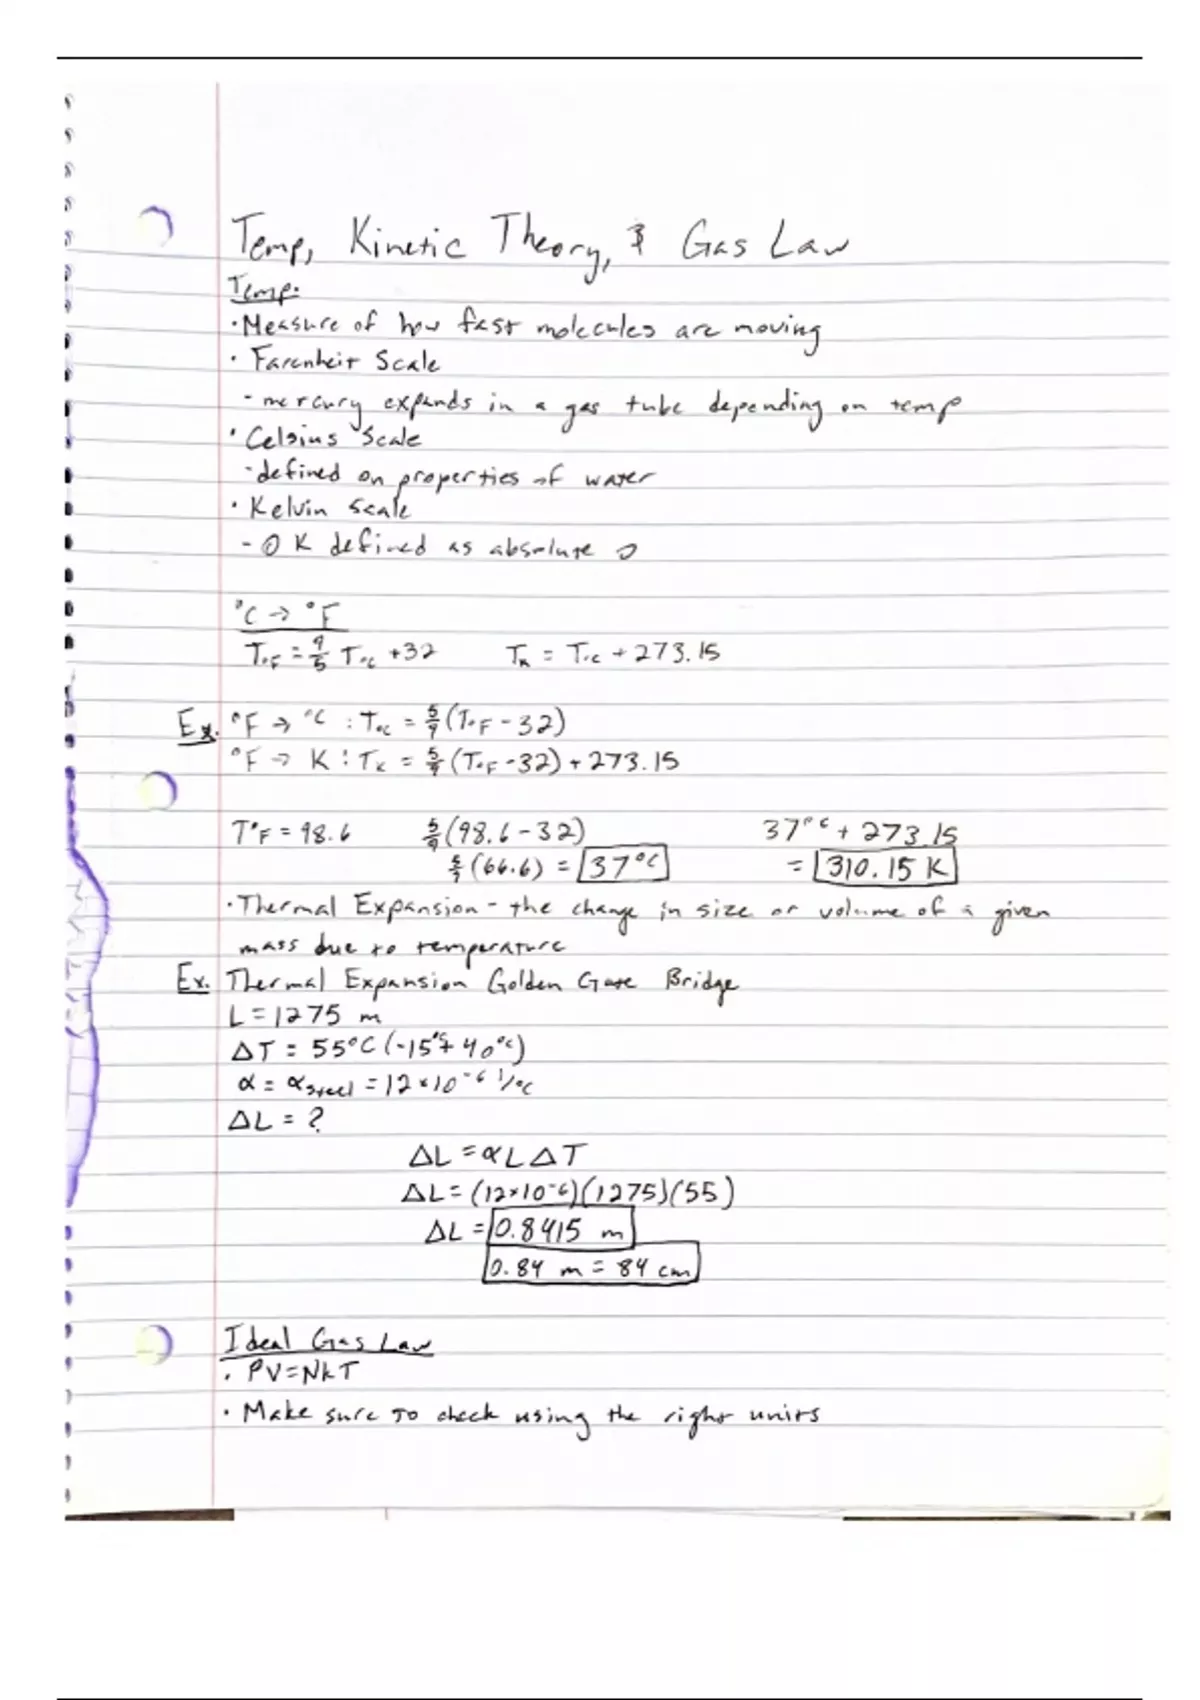 Temp, Kinetic Theory, & Gas Law
Temp:
• Measure of how fast molecules are moving
• Farenheit Scale
- mercury expands in a gas tube depending on temp
• Celsius Scale
- defined on properties of water
• Kelvin Scale
- 0 K defined as absolute 0
°C → °F
T°F = 9/5 T°C + 32 TK = T°C + 273.15
Ex. °F → °C : T°C = 5/9 (T°F - 32)
°F → K : TK = 5/9 (T°F - 32) + 273.15
T°F = 98.6 5/9 (98.6 - 32) 37°C + 273.15
5/9 (66.6) = 37°C = 310.15 K
• Thermal Expansion - the change in size or volume of a given
mass due to temperature
Ex. Thermal Expansion Golden Gate Bridge
L = 1275 m
ΔT = 55°C (-15°C → 40°C)
α = αsteel = 12 × 10⁻⁶ 1/°C
ΔL = ?
ΔL = αLΔT
ΔL = (12×10⁻⁶)(1275)(55)
ΔL = 0.8415 m
0.84 m = 84 cm
Ideal Gas Law
• PV = NkT
• Make sure to check using the right units